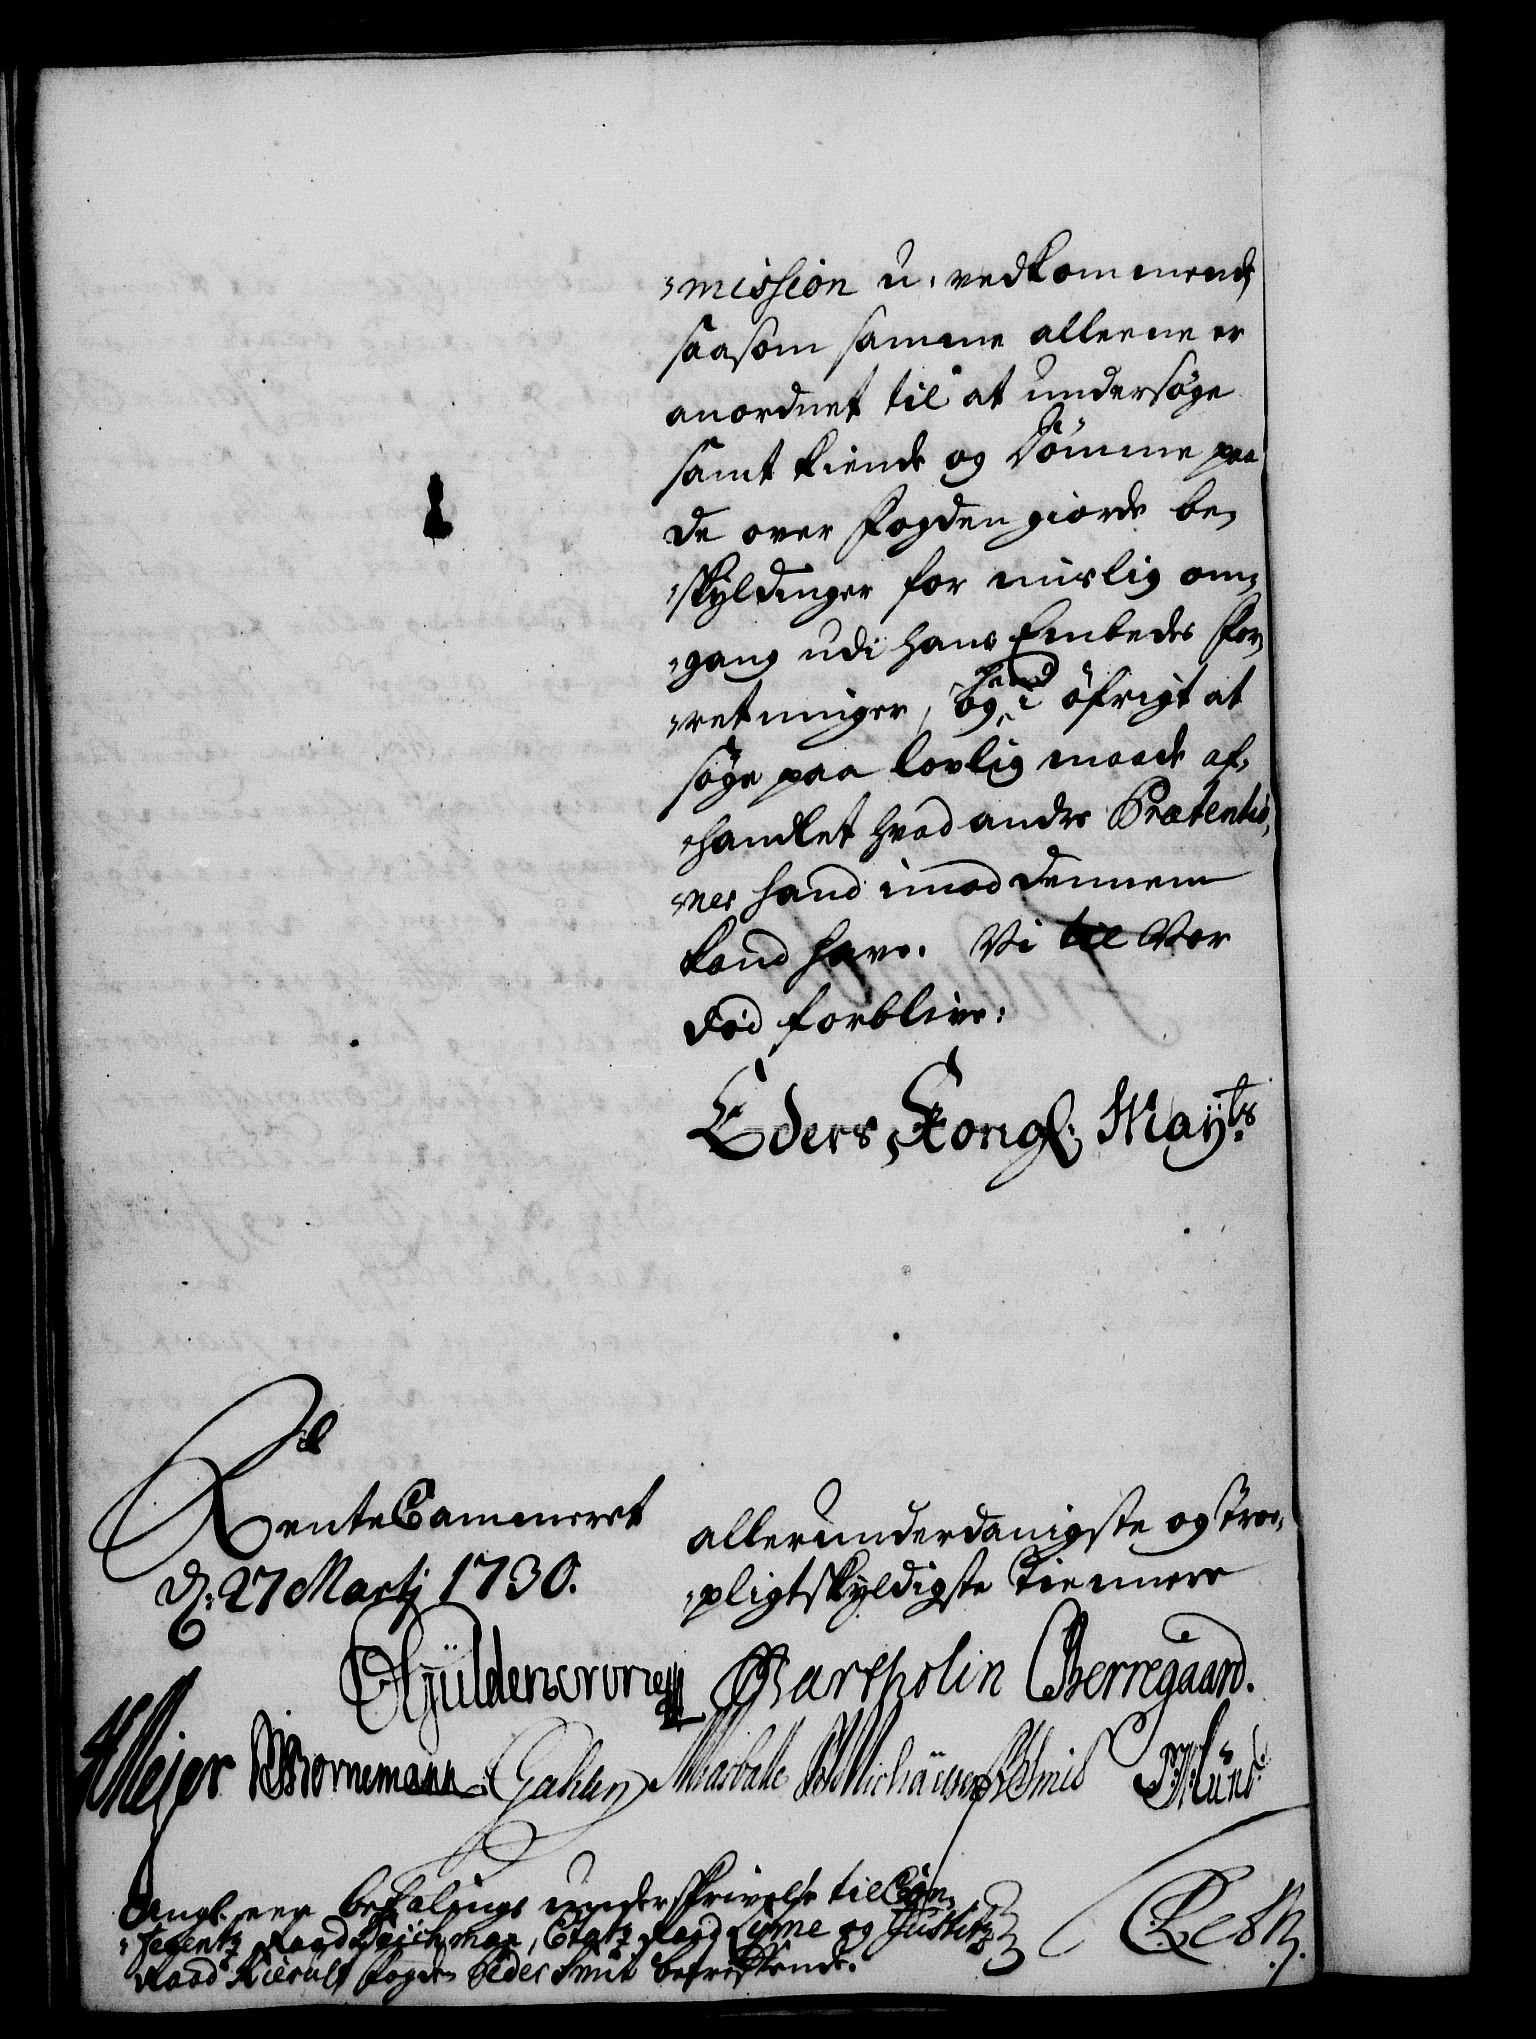 -mission u-vedkommende,
saasom samme alleene er
anordnet til at undersøge
samt kiende og Dømme paa
de over Fogden giorde be-
-skyldinger for mislig om-
-gang udi hans Embedes For-
-retninger, og hand i øfrigt at
søge paa lovlig maade af-
-handlet hvad andre Prætentio-
-ner hand imod dennem
kand have. Vi til Vor
Død forblive:
Eders Kongl. Mayts
RenteCammeret
d. 27 Martj 1730.
allerunderdanigste og Troe-
-pligtskyldigste Tiennere
CGüldencrone Bartholin Berregaard.
HMejer Bornemann Gahlen Michäelsen Smid
Ang. een befalings underskrivelse til Con-
-ferentz Raad Deichman, Etatz Raad og Justitz
Raad Kierulf Fogden Peder Smit betreffende.